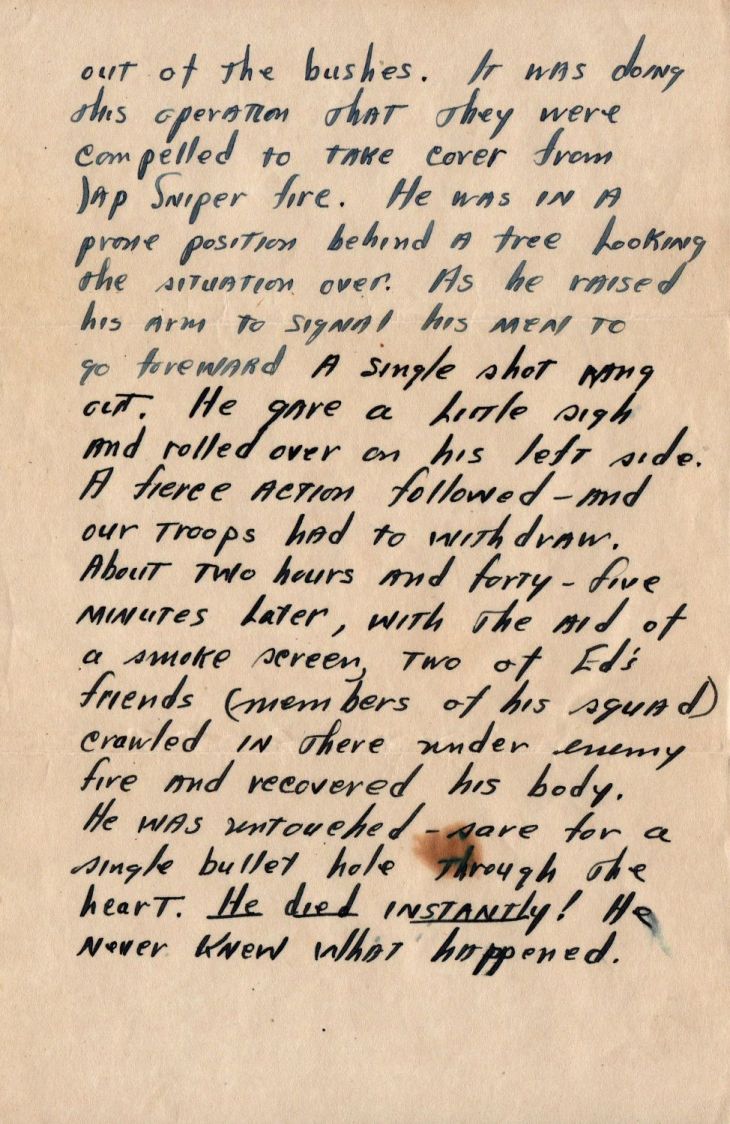 out of the bushes. It was doing
this operation that they were
compelled to take cover from
Jap Sniper fire. He was in a
prone position behind a tree looking
the situation over. As he raised
his arm to signal his men to
go foreward a single shot rang
out. He gave a little sigh
and rolled over on his left side.
A fierce action followed - and
our troops had to withdraw.
About two hours and forty-five
minutes later, with the aid of
a smoke screen, two of Ed's
friends (members of his squad)
crawled in there under enemy
fire and recovered his body.
He was untouched - save for a
single bullet hole through the
heart. He died instantly! He
never knew what happened.